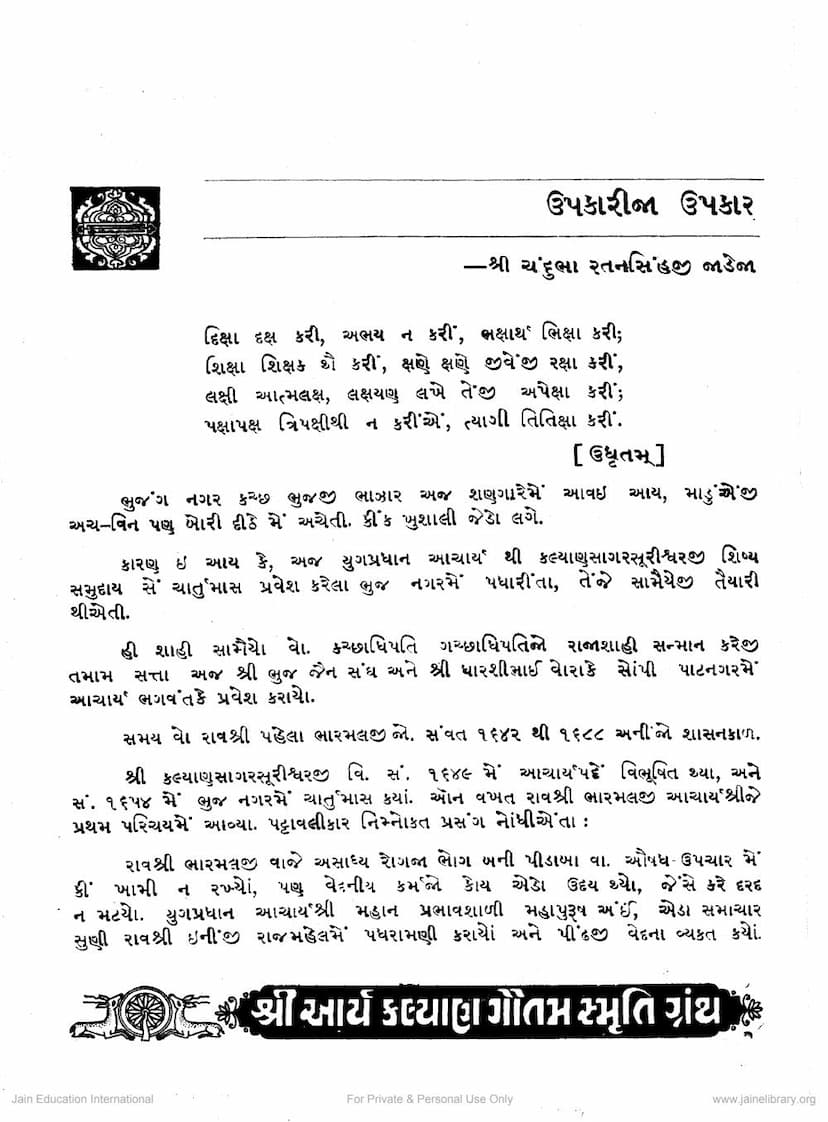 ઉપકારીજા ઉપકાર
—શ્રી ચંદુભા રતનસિંહજી જાડેજા
દિક્ષા દક્ષ કરી, અભય ન કરીં, ભક્ષાર્થ ભિક્ષા કરી;
શિક્ષા શિક્ષક શૈ કરીં, ક્ષણે ક્ષણે જીવેંજી રક્ષા કરીં,
લક્ષી આત્મલક્ષ, લક્ષયણુ લખે તેંજી અપેક્ષા કરીં;
પક્ષાપક્ષ ત્રિપક્ષીથી ન કરીંએં, ત્યાગી તિતિક્ષા કરીં.
[ ઉધૃતમ્ ]
ભુજંગ નગર કચ્છ ભુજજી ભાઝાર અજ શણગારેમેં આવઇ આય, માડુંએંજી
અચ-વિન પણુ ખોરી ડીઠે મેં અચેતી. કીંક ખુશાલી જેડો લગે.
કારણુ ઇ આય કે, અજ યુગપ્રધાન આચાર્ય શ્રી કલ્યાણુસાગરસૂરીશ્વરજી શિષ્ય
સમુદાય સેં ચાર્તુમાસ પ્રવેશ કરેલા ભુજ નગરમેં પધારીંતા, તેંજે સામૈયેજી તૈયારી
થીએતી.
હી શાહી સામૈયો વો. કચ્છાધિપતિ ગચ્છાધિપતિજો રાજાશાહી સન્માન કરેજી
તમામ સત્તા અજ શ્રી ભુજ જૈન સંઘ અને શ્રી ધારશીભાઈ વોરાકે સોંપી પાટનગરમેં
આચાર્ય ભગવંતકે પ્રવેશ કરાયો.
સમય વો રાવશ્રી પહેલા ભારમલજી જો. સંવત ૧૬૪૨ થી ૧૬૮૮ અનીંજો શાસનકાળ.
શ્રી કલ્યાણુસાગરસૂરીશ્વરજી વિ. સં. ૧૬૪૯ મેં આચાર્યપદેં વિભૂષિત થ્યા, અને
સં. ૧૬૫૪ મેં ભુજ નગરમેં ચાર્તુમાસ કયાં. ઔન વખત રાવશ્રી ભારમલજી આચાર્યશ્રીજે
પ્રથમ પરિચયમેં આવ્યા. પટ્ટાવલીકાર નિમ્નોકત પ્રસંગ નોંધીએંતા :
રાવશ્રી ભારમલજી વાજે અસાધ્ય રોગજા ભોગ બની પીડાબા વા. ઔષધ-ઉપચાર મેં
કીં ખામી ન રખ્યોં, પણુ વેદનીય કર્મજો કોય એડો ઉદય થ્યો, જેંસે કરે દરદ
ન મટયો. યુગપ્રધાન આચાર્યશ્રી મહાન પ્રભાવશાળી મહાપુરૂષ અંઈં, એડા સમાચાર
સુણી રાવશ્રી ઇનીંજી રાજમહેલમેં પધરામણી કરાયોં અને પીંઢજી વેદના વ્યકત કયોં.
શ્રી આર્ય કલ્યાણ ગૌતમ સ્મૃતિ ગ્રંથ
Jain Education International
For Private & Personal Use Only
www.jainelibrary.org